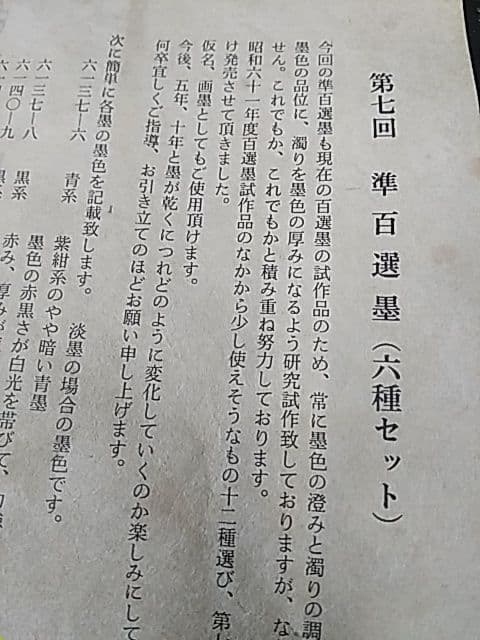 第七回 準百選墨（六種セット）
今回の準百選墨も現在の百選墨の試作品のため、常に墨色の澄みと濁りの調
墨色の品位に、濁りを墨色の厚みになるよう研究試作致しておりますが、な
せん。これでもか、これでもかと積み重ね努力しております。
昭和六十一年度百選墨試作品のなかから少し使えそうなもの十二種選び、第七
け発売させて頂きました。
仮名、画墨としてもご使用頂けます。
今後、五年、十年と墨が乾くにつれどのように変化していくのか楽しみにして
何卒宜しくご指導、お引き立てのほどお願い申し上げます。
次に簡単に各墨の墨色を記載致します。
淡墨の場合の墨色です。
六一三七―六 青系 紫紺系のやや暗い青墨
六一三七―八 黒系 墨色の赤黒さが白光を帯びて、
六一四〇―九 黒系 赤み、厚みが